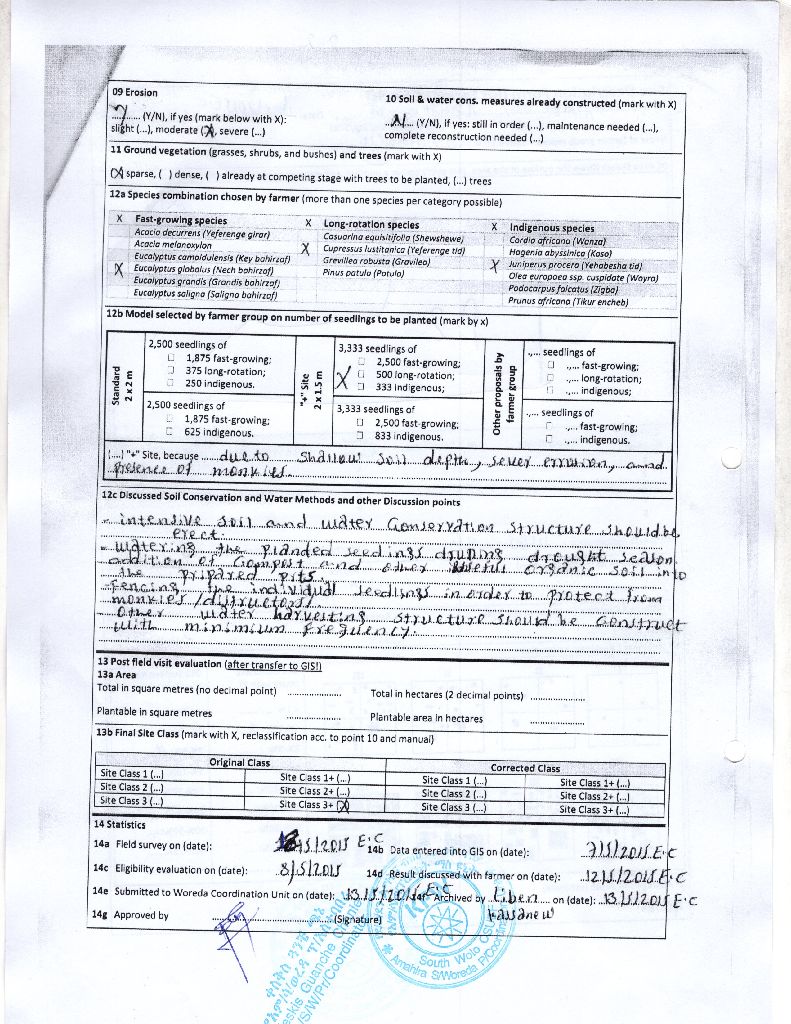 09 Erosion
10 Soil & water cons. measures already constructed (mark with X)
..Y.... (Y/N), if yes (mark below with X):
slight (...), moderate (X), severe (...)
..N... (Y/N), if yes: still in order (...), maintenance needed (...),
complete reconstruction needed (...)
11 Ground vegetation (grasses, shrubs, and bushes) and trees (mark with X)
(X) sparse, ( ) dense, ( ) already at competing stage with trees to be planted, (...) trees
12a Species combination chosen by farmer (more than one species per category possible)
X Fast-growing species
Acacia decurrens (Yeferenge girar)
Acacia melanoxylon
Eucalyptus camaldulensis (Key bahirzaf)
X Eucalyptus globulus (Nech bahirzaf)
Eucalyptus grandis (Grandis bahirzaf)
Eucalyptus saligna (Saligna bahirzaf)
X Long-rotation species
Casuarina equisitifolia (Shewshewe)
X Cupressus lustitanica (Yeferenge tid)
Grevillea robusta (Gravilea)
Pinus patula (Patula)
X Indigenous species
Cordia africana (Wanza)
Hagenia abyssinica (Koso)
X Juniperus procera (Yehabesha tid)
Olea europaea ssp. cuspidate (Wayra)
Podocarpus falcatus (Zigba)
Prunus africana (Tikur encheb)
12b Model selected by farmer group on number of seedlings to be planted (mark by x)
Standard
2 x 2 m
2,500 seedlings of
1,875 fast-growing;
375 long-rotation;
250 indigenous.
2,500 seedlings of
1,875 fast-growing;
625 indigenous.
"+" Site
2 x 1.5 m
3,333 seedlings of
2,500 fast-growing;
X 500 long-rotation;
333 indigenous;
3,333 seedlings of
2,500 fast-growing;
833 indigenous.
Other proposals by
farmer group
.,... seedlings of
.,... fast-growing;
.,... long-rotation;
.,... indigenous;
.,... seedlings of
.,... fast-growing;
.,... indigenous.
(....) "+" Site, because due to shallow soil depth, sever errosion, and
presence of monkies.
12c Discussed Soil Conservation and Water Methods and other Discussion points
- intensive soil and water Conservation structure should be
erect.
- watering the planded seedings druning drought season
addition of Compost and other useful organic soil into
the pripared pits.
- Fencing the individual seedlings in order to protect from
monkies /distructors/.
other water harvesting structure should be construct
with minimum frequency.
13 Post field visit evaluation (after transfer to GIS!)
13a Area
Total in square metres (no decimal point) ....................
Total in hectares (2 decimal points) ....................
Plantable in square metres ....................
Plantable area in hectares ....................
13b Final Site Class (mark with X, reclassification acc. to point 10 and manual)
Original Class
Corrected Class
Site Class 1 (...) Site Class 1+ (...) Site Class 1 (...) Site Class 1+ (...)
Site Class 2 (...) Site Class 2+ (...) Site Class 2 (...) Site Class 2+ (...)
Site Class 3 (...) Site Class 3+ (X) Site Class 3 (...) Site Class 3+ (...)
14 Statistics
14a Field survey on (date): /5/2015 E.C
14b Data entered into GIS on (date): 7/5/2015 E.C
14c Eligibility evaluation on (date): 8/5/2015
14d Result discussed with farmer on (date): 12/5/2015 E.C
14e Submitted to Woreda Coordination Unit on (date): 13/5/2015 E.C
14f Archived by Liben on (date): 13/5/2015 E.C
Hassanew
14g Approved by
(Signature)
South Wolo CSU
Amahra S/Woreda P/Coordin
Guanche
S/W/Pr/Coordinat